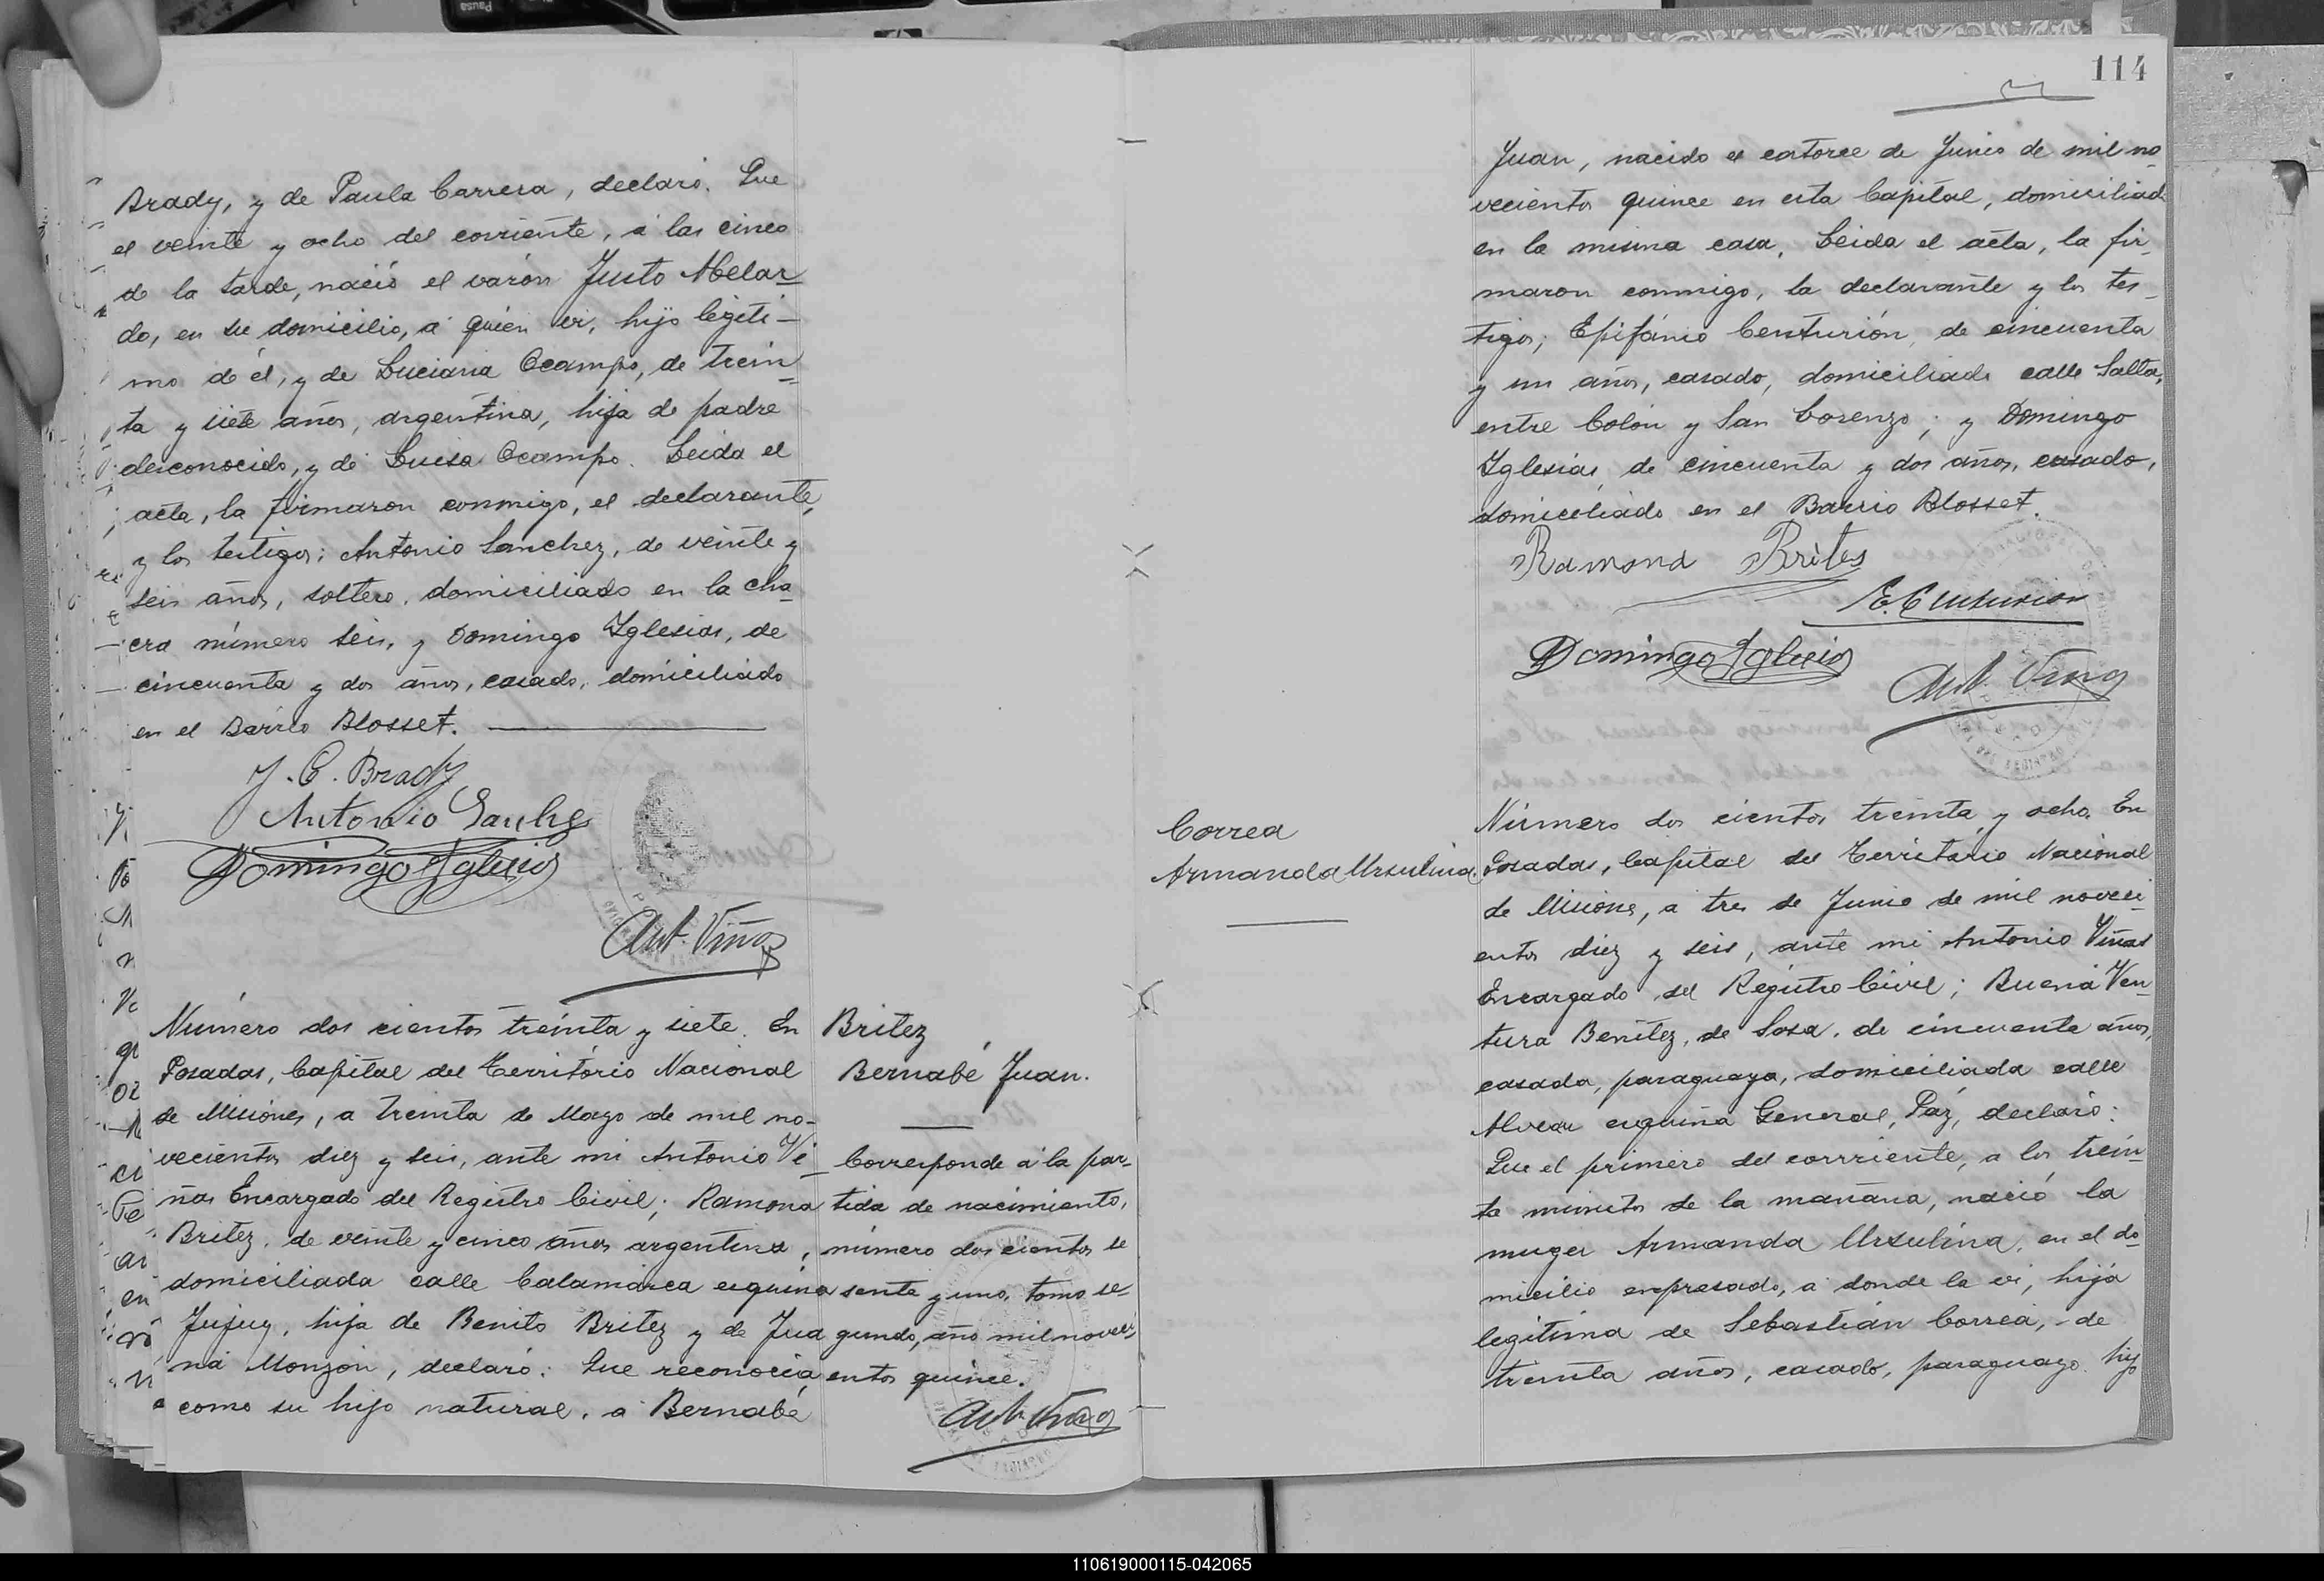 Brady, y de Paula Carrera, declaró. Que
el veinte y ocho del corriente, á las cinco
de la tarde, nació el varón Justo Abelar-
do, en su domicilio, á quien vi, hijo legiti-
mo de él, y de Luciana Ocampo, de trein-
ta y siete años, argentina, hija de padre
desconocido, y de Luisa Ocampo. Leida el
acta, la firmaron conmigo, el declarante,
y los testigos: Antonio Sanchez, de veinte y
seis años, soltero, domiciliado en la cha-
cra número seis, y Domingo Iglesias, de
cincuenta y dos años, casado, domiciliado
en el Barrio Blosset.
J. C. Brady
Antonio Sanche
Domingo Iglesias
Ant. Viñas
Número dos cientos treinta y siete. En
Posadas, Capital del Territorio Nacional
de Misiones, a treinta de Mayo de mil no-
vecientos diez y seis, ante mi Antonio Vi-
ñas Encargado del Registro Civil; Ramona
Britez, de veinte y cinco años argentina,
domiciliada calle Catamarca esquina
Jujuy, hija de Benito Britez y de Jua
na Monzón, declaró: Que reconocia
como su hijo natural, a Bernabé
Britez
Bernabé Juan.
Corresponde á la par-
tida de nacimiento,
número dos cientos se
senta y uno, tomo se-
gundo, año mil noveci-
entos quince.
Ant. Viñas
114
Juan, nacido el catorce de Junio de mil no-
vecientos quince en esta Capital, domiciliad
en la misma casa. Leida el acta, la fir-
maron conmigo, la declarante y los tes-
tigos; Epifánio Centurión, de cincuenta
y un años, casado, domiciliado calle Salta,
entre Colón y San Lorenzo; y Domingo
Iglesias, de cincuenta y dos años, casado,
domiciliado en el Barrio Blosset.
Ramona Brites
E. Centurion
Domingo Iglesias
Ant. Viñas
Correa
Armanda Ursulina.
Número dos cientos treinta y ocho. En
Posadas, Capital del Territorio Nacional
de Misiones, a tres de Junio de mil noveci-
entos diez y seis, ante mi Antonio Viñas
Encargado del Registro Civil; Buena Ven-
tura Benitez, de Sosa, de cincuenta años,
casada, paraguaya, domiciliada calle
Alvear esquina General Paz, declaró:
Que el primero del corrriente, a los trein-
ta minutos de la mañana, nació la
muger Armanda Ursulina, en el do-
micilio expresado, a donde la vi, hija
legitima de Sebastián Correa, de
treinta años, casado, paraguayo hijo
110619000115-042065